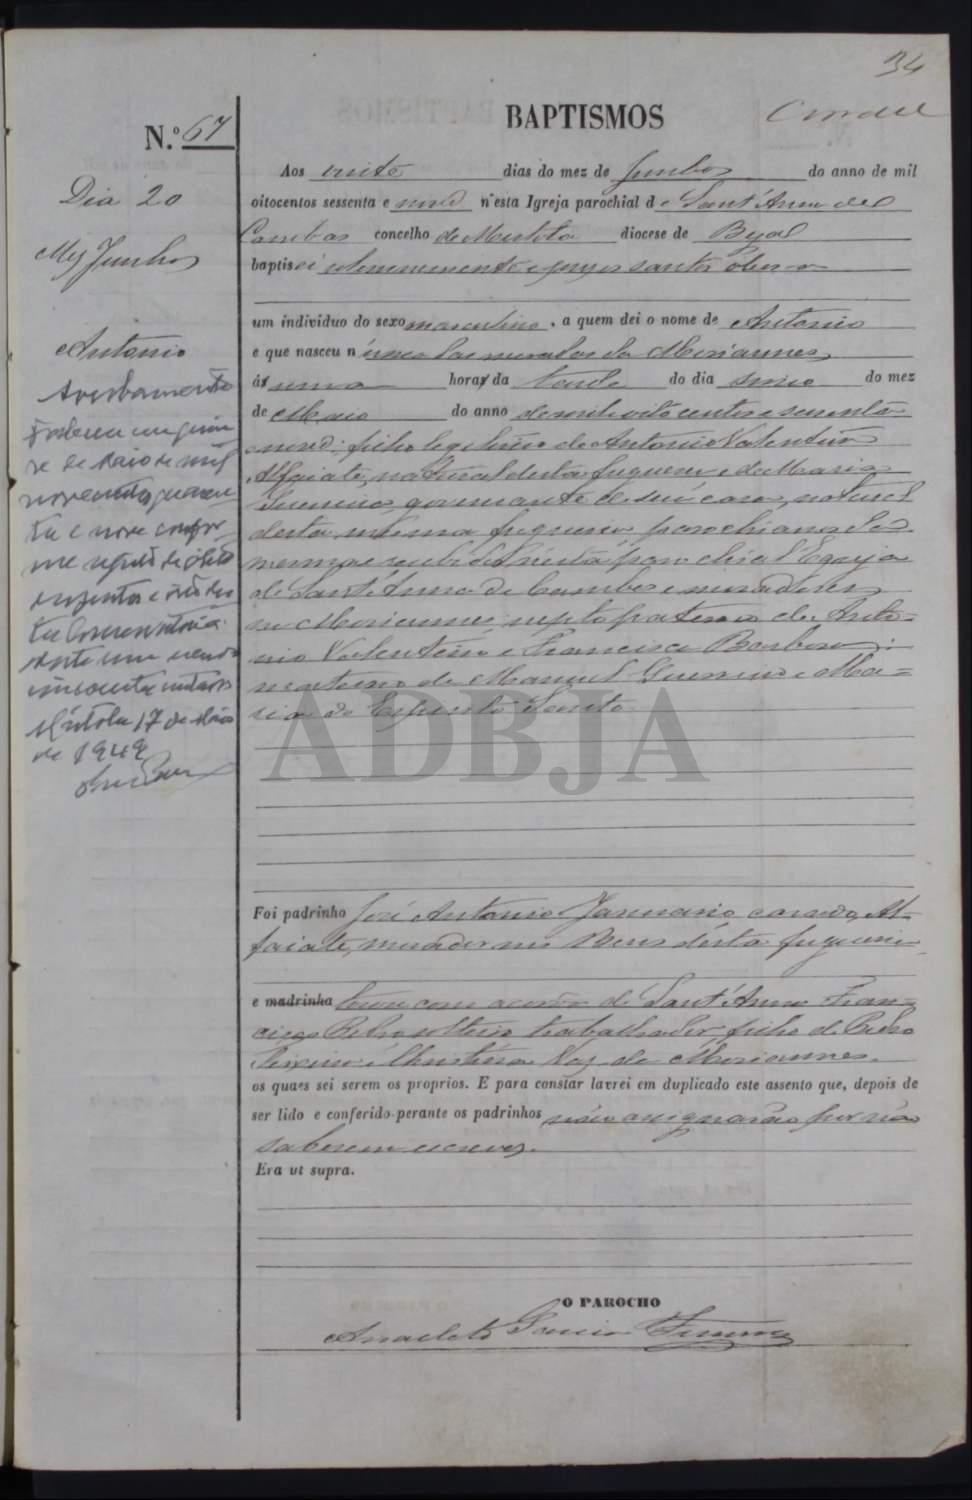 34
Cambas
BAPTISMOS
N.º 67
Dia 20
Mez Junho
Antonio
Averbamento
Faleceu em
se de Maio de mil
novecentos quaren
ta e nove confor
me
Conservatoria
cincoenta
Mértola 17 de Maio
de 1949
Aos vinte dias do mez de Junho do anno de mil
oitocentos sessenta e nove n'esta Igreja parochial de Sant'Anna de
Cambas concelho de Mertola diocese de Beja
baptisei solemnemente e puz os santos oleos
um individuo do sexo masculino, a quem dei o nome de Antonio
e que nasceu n da Moriannes
ás uma horas da tarde do dia cinco do mez
de Maio do anno de mil oito centos e sessenta
e nove: filho legitimo de Antonio Valentim
Alfaiate, natural desta freguezia e de Maria
governante de sua casa, natural
desta mesma freguezia parochianos da
mesma e recebidos n'esta parochial Egreja
de Sant'Anna de Cambas e moradores
em Moriannes; neto paterno de Anto-
nio Valentim e Francisca Barbosa:
materno de Manuel e Ma-
ria do Espirito Santo.
ADBJA
Foi padrinho José Antonio Januario, casado, Al-
faiate, morador desta freguezia
e madrinha tocou com a corôa de Sant'Anna Fran-
cisco Pedro solteiro trabalhador filho de Pedro
de Moriannes.
os quaes sei serem os proprios. E para constar lavrei em duplicado este assento que, depois de
ser lido e conferido perante os padrinhos não assignarão por não
saberem escrever.
Era ut supra.
O PAROCHO
Anacleto Garcia